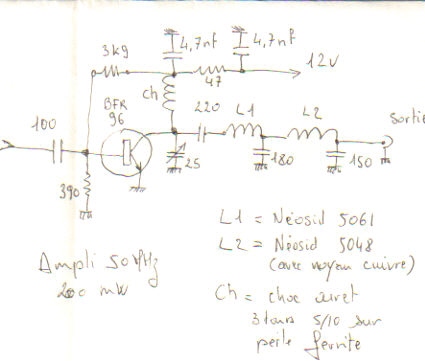 4,7nf
4,7nf
3k9
47
12V
ch
BFR
96
220
L1
L2
sortie
100
25
180
150
390
L1 = Néosid 5061
L2 = Néosid 5048
(avec noyau cuivre)
Ampli 50 MHz
200 mW
Ch = choc
3 tours 5/10 sur
perle ferrite